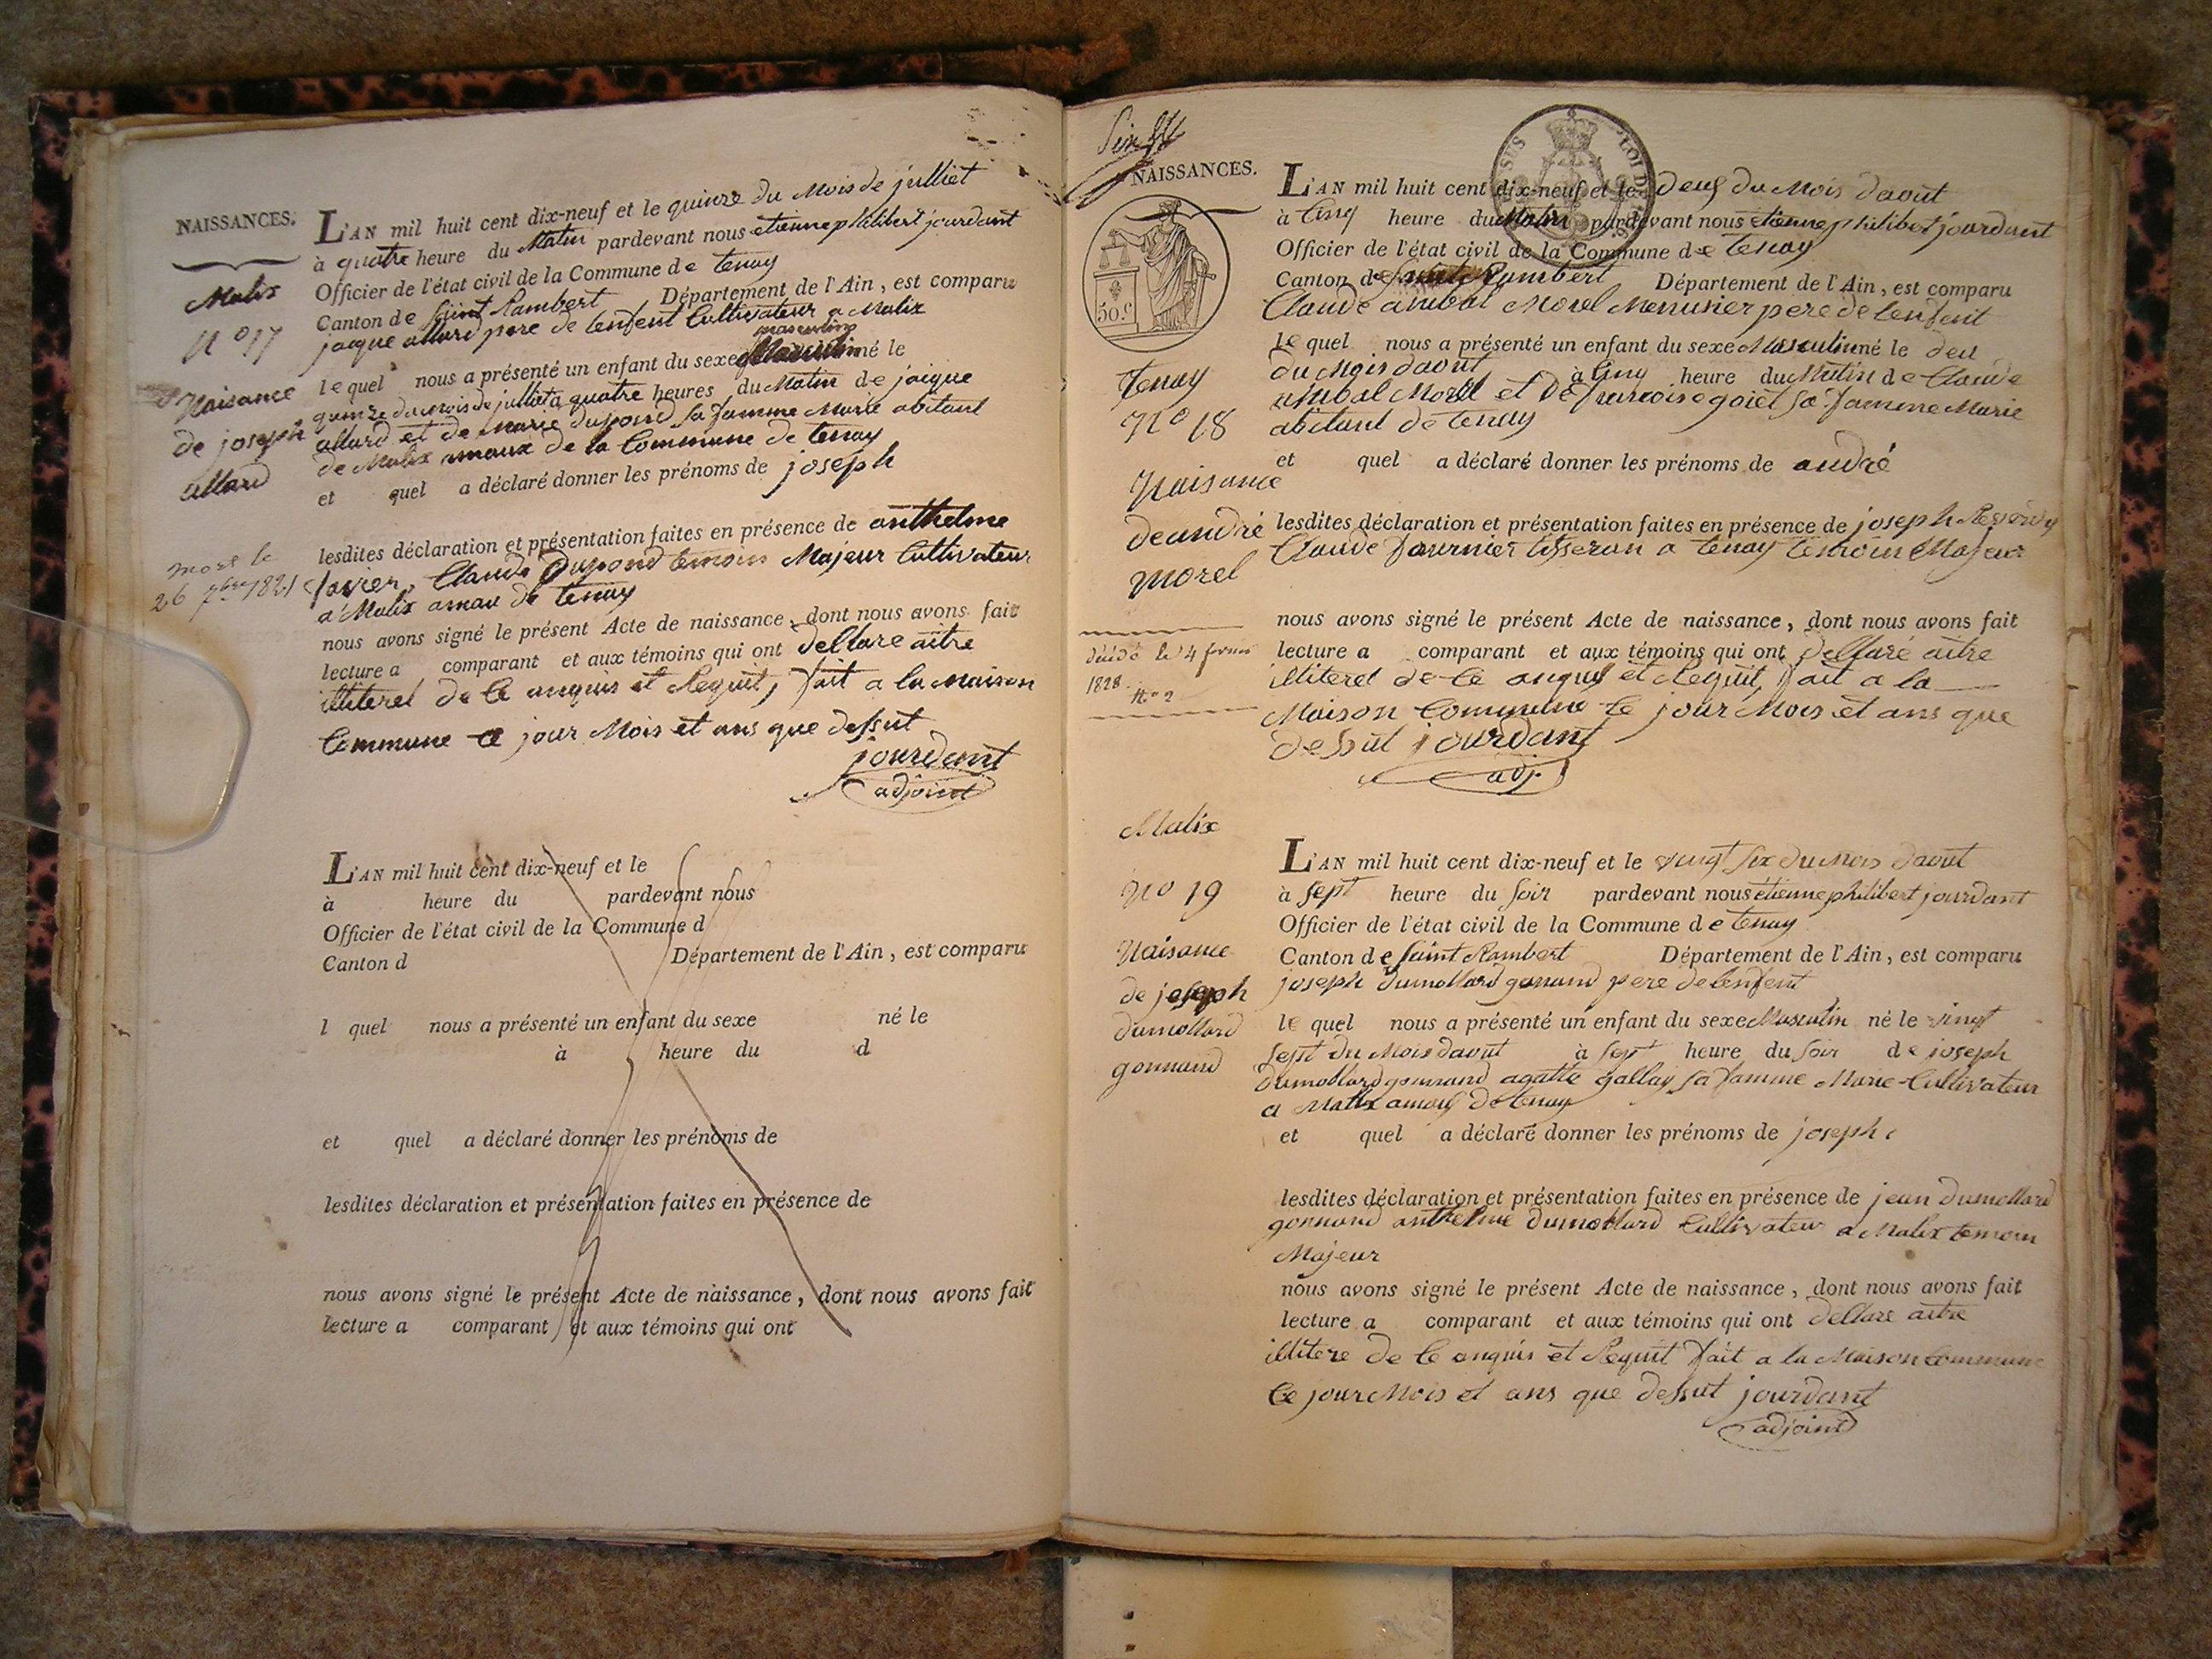 NAISSANCES.
Malix
N° 17
Naisance
de joseph
allard
mort le
26 7bre 1821
L'AN mil huit cent dix-neuf et le quinze du Mois de julliet
à quatre heure du Matin pardevant nous etienne philibert jourdant
Officier de l'état civil de la Commune de tenay
Canton de Saint Rambert Département de l'Ain, est comparu
jacque allard pere de lenfent Cultivateur a Malix
masculin
lequel nous a présenté un enfant du sexe né le
quinze du mois de julliet à quatre heures du Matin de jacque
allard et de marie dupond sa famme Marie abitant
de Malix amaux de la Commune de tenay
et quel a déclaré donner les prénoms de joseph
lesdites déclaration et présentation faites en présence de anthelme
Claude Dupond temoin Majeur Cultivateur
a Malix amau de tenay
nous avons signé le présent Acte de naissance, dont nous avons fait
lecture a comparant et aux témoins qui ont dellare aitre
illiteret de Ce anquis et Requit, fait a la Maison
Commune Ce jour Mois et ans que dessut
jourdant
adjoint
L'AN mil huit cent dix-neuf et le
à heure du pardevant nous
Officier de l'état civil de la Commune d
Canton d Département de l'Ain, est comparu
l quel nous a présenté un enfant du sexe né le
à heure du d
et quel a déclaré donner les prénoms de
lesdites déclaration et présentation faites en présence de
nous avons signé le présent Acte de naissance, dont nous avons fait
lecture a comparant et aux témoins qui ont
NAISSANCES.
50.c
tenay
N° 18
Naisance
de andré
morel
décédé le 4 fevrier
1828.
N° 2
L'AN mil huit cent dix-neuf et le deux du Mois daout
à Cinq heure du Matin pardevant nous etienne philibert jourdant
Officier de l'état civil de la Commune de tenay
Canton de Saint Rambert Département de l'Ain, est comparu
Claude anibal Morel Menusier pere de lenfent
lequel nous a présenté un enfant du sexe Masculin né le deu
du Mois daout à Cinq heure du Matin de Claude
anibal Morel et De francoise goiet sa famme Marie
abitant de tenay
et quel a déclaré donner les prénoms de andré
lesdites déclaration et présentation faites en présence de joseph
Claude fournier tisseran a tenay temoin Majeur
nous avons signé le présent Acte de naissance, dont nous avons fait
lecture a comparant et aux témoins qui ont dellaré aitre
illiteret de Ce anquis et Requit, fait a la
Maison Commune Ce jour Mois et ans que
dessut jourdant
adj.
Malix
N° 19
Naisance
de joseph
dumollard
gonnand
L'AN mil huit cent dix-neuf et le vingt six du Mois daout
à sept heure du soir pardevant nous étienne philibert jourdant
Officier de l'état civil de la Commune de tenay
Canton de Saint Rambert Département de l'Ain, est comparu
joseph dumollard gonnand pere de lenfent
lequel nous a présenté un enfant du sexe Masculin né le vingt
sept du Mois daout à sept heure du soir de joseph
dumollard gonnand agatte gallay sa famme Marie Cultivateur
a Malix amaux de tenay
et quel a déclaré donner les prénoms de joseph
lesdites déclaration et présentation faites en présence de jean dumollard
gonnand anthelme dumollard Cultivateur a Malix temoin
Majeur
nous avons signé le présent Acte de naissance, dont nous avons fait
lecture a comparant et aux témoins qui ont dellare aitre
illitere de Ce anquis et Requit fait a la Maison Commune
Ce jour Mois et ans que dessut jourdant
adjoint